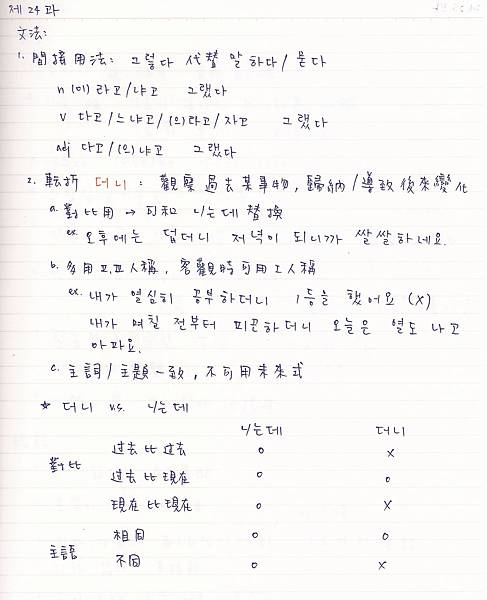 제 24과
文法:
1. 間接用法: 그렇다 代替 말하다/묻다
n (이)라고/냐고 그랬다
v 다고/느냐고/(으)라고/자고 그랬다
adj 다고/(으)냐고 그랬다
2. 転折 더니: 觀察過去某事物, 歸納/導致後來變化
a. 對比用 → 可和 ㄴ/는데 替換
ex. 오후에는 덥더니 저녁이 되니까 쌀쌀하네요.
b. 多用Ⅱ.Ⅲ人稱, 客觀時可用Ⅰ人稱
ex. 내가 열심히 공부하더니 1등을 했어요 (X)
내가 며칠 전부터 피곤하더니 오늘은 열도 나고
아파요.
c. 主詞/主題一致, 不可用未來式
* 더니 v.s. ㄴ/는데
ㄴ/는데 더니
對比 过去比过去 o x
过去比現在 o o
現在比現在 o x
主語 相同 o o
不同 o x